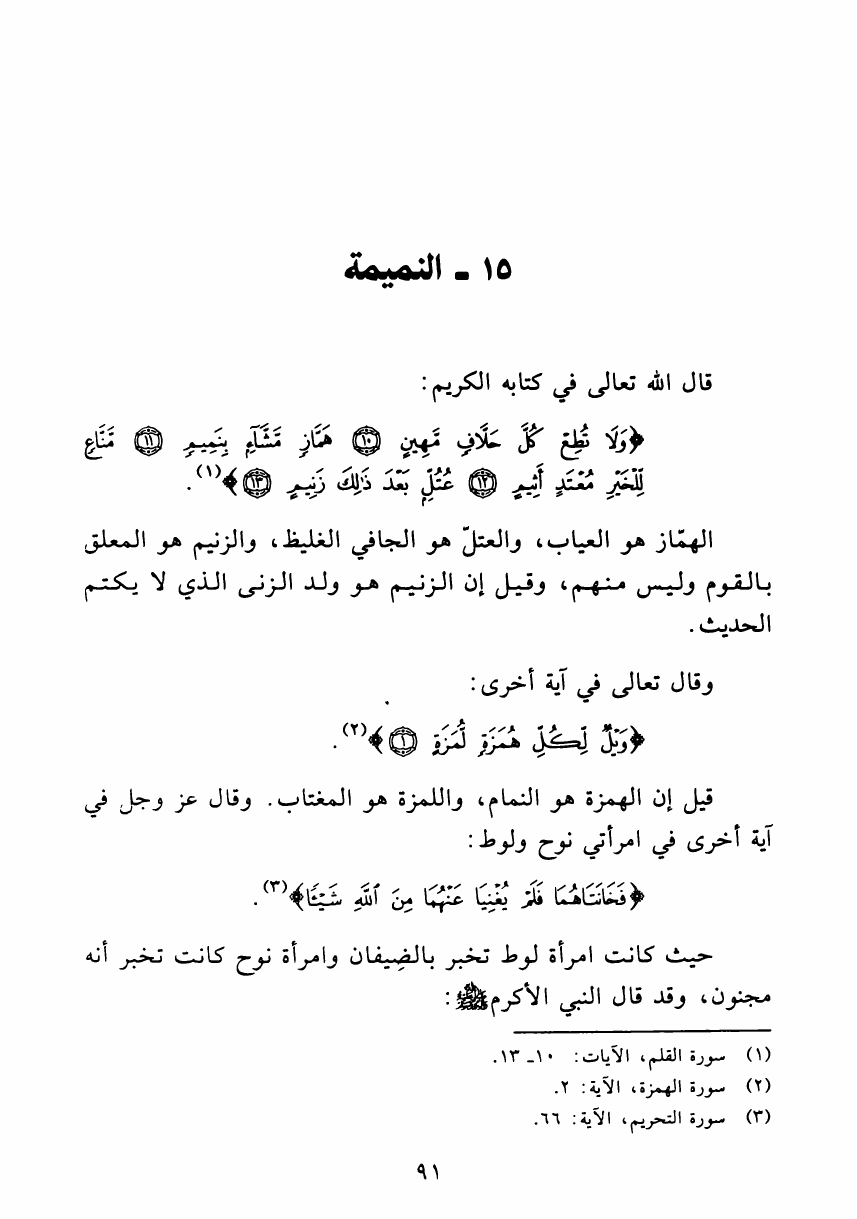 ١٥ - النميمة
قال الله تعالى في كتابه الكريم:
﴿وَلَا تُطِعْ كُلَّ حَلَّافٍ مَّهِينٍ ۝١٠ هَمَّازٍ مَّشَّآءٍ بِنَمِيمٍ ۝١١ مَّنَّاعٍ
لِّلْخَيْرِ مُعْتَدٍ أَثِيمٍ ۝١٢ عُتُلٍّ بَعْدَ ذَٰلِكَ زَنِيمٍ ۝١٣﴾(١).
الهمّاز هو العياب، والعتلّ هو الجافي الغليظ، والزنيم هو المعلق
بالقوم وليس منهم، وقيل إن الزنيم هو ولد الزنى الذي لا يكتم
الحديث.
وقال تعالى في آية أخرى:
﴿وَيْلٌ لِّكُلِّ هُمَزَةٍ لُّمَزَةٍ ۝١﴾(٢).
قيل إن الهمزة هو النمام، واللمزة هو المغتاب. وقال عز وجل في
آية أخرى في امرأتي نوح ولوط:
﴿فَخَانَتَاهُمَا فَلَمْ يُغْنِيَا عَنْهُمَا مِنَ ٱللَّهِ شَيْـًٔا﴾(٣).
حيث كانت امرأة لوط تخبر بالضِيفان وامرأة نوح كانت تخبر أنه
مجنون، وقد قال النبي الأكرم ﷺ:
(١) سورة القلم، الآيات: ١٠ـ ١٣.
(٢) سورة الهمزة، الآية: ٢.
(٣) سورة التحريم، الآية: ٦٦.
٩١